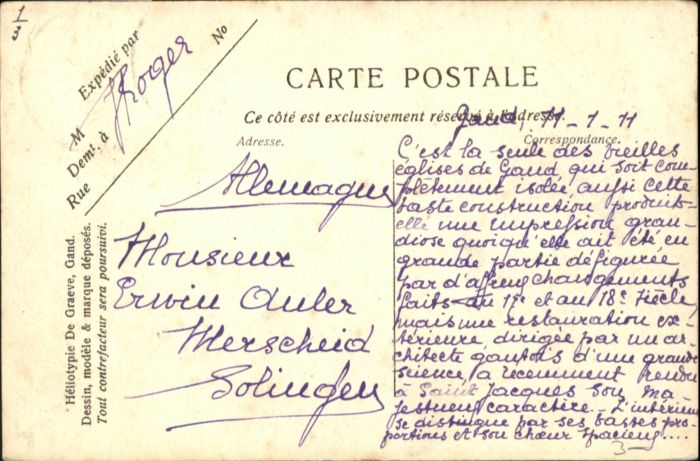 1/3
M Expédié par
Demt. à
Rue No
J Roger
CARTE POSTALE
Ce côté est exclusivement réservé à l'adresse.
Adresse.
Correspondance.
Allemagne
Monsieur
Erwin Auler
Merscheid
Solingen
Héliotypie De Graeve, Gand.
Dessin, modèle & marque déposés.
Tout contrefacteur sera poursuivi.
Gand, 11-1-11
C'est la seule des vieilles
églises de Gand qui soit com-
plètement isolée, aussi cette
vaste construction produit-
elle une impression gran-
diose quoiqu'elle ait été en
grande partie défigurée
par d'affreux changements
faits au 17e et au 18e siècle,
mais une restauration ex-
térieure, dirigée par un ar-
chitecte gantois d'une grande
science, a récemment rendu
à Saint Jacques son ma-
jestueux caractère. - L'intérieur
se distingue par ses vastes pro-
portions et son chœur spacieux....
3